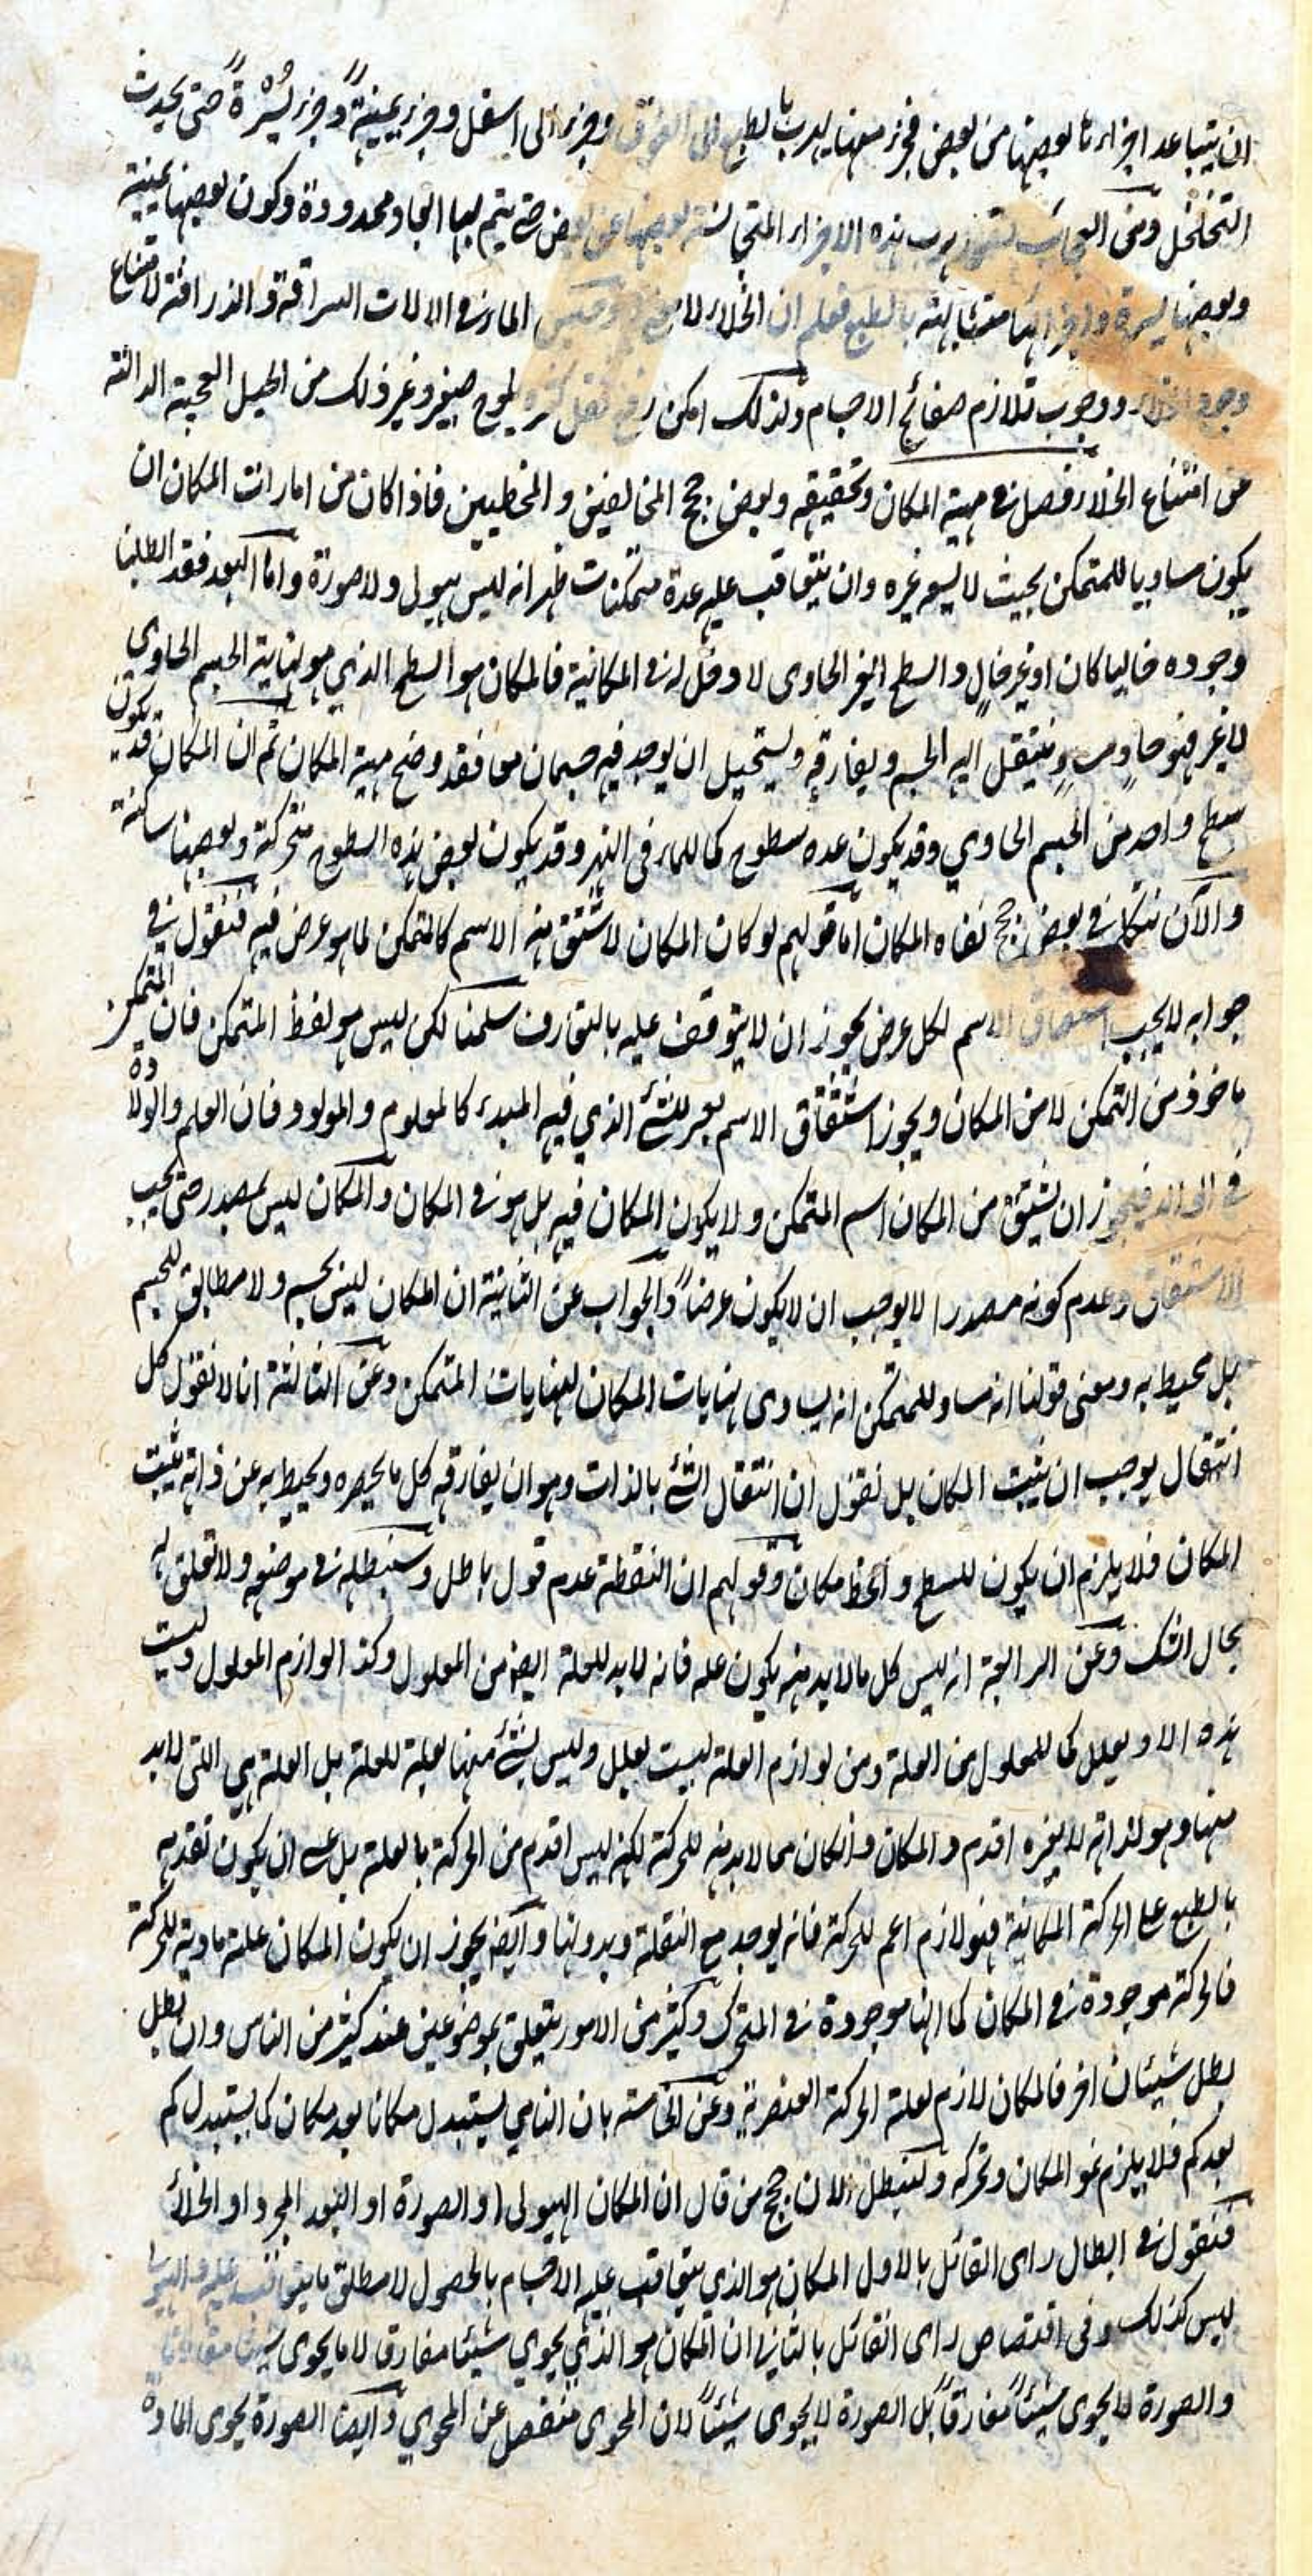 ان يتباعد اجزاءنا بعضها من بعض فجزء منها يهرب بالطبع الى الفوق وجزء الى اسفل وجزء يمينةً وجزء يسرةً حتى يحدث
التخلخل ومن العجائب هرب هذه الاجزاء المتجانسة بعضها عن بعض حتى يتم لها ابعاد محدودة وكون بعضها يمينة
وبعضها يسرة واجزائها متشابهة بالطبع فعلم ان الخلاء لا وحبس الماء في الالات السراقة والذراقة لامتناع
وجود الخلاء ووجوب تلازم صفائح الاجسام ولذلك امكن رفع ثقل كثير لموح صغير وغير ذلك من الحيل العجيبة الدالة
من امتناع الخلاء فصل في مهية المكان وتحقيقه وبعض حجج المخالفين والمخطيين فاذا كان من امارات المكان ان
يكون مساويا للمتمكن بحيث لا يسع غيره وان يتعاقب عليه عدة متمكنات ظهر انه ليس هيولى ولا صورة واما البعد فقد ابطلنا
وجوده خاليا كان او غير خالٍ والسطح الغير الحاوى لا دخل له في المكانية فالمكان هو السطح الذي هو نهاية الجسم الحاوى
لا غير فهو حاوٍ ومساوٍ وينتقل اليه الجسم ويفارقه ويستحيل ان يوجد فيه جسمان معا فقد وضح مهية المكان ثم ان المكان قد يكون
سطح واحد من الجسم الحاوي وقد يكون عدة سطوح كما للماء فى النهر وقد يكون بعض هذه السطوح متحركة وبعضها ساكنة
والآن نتكلم في بعض حجج نفاه المكان اما قولهم لو كان المكان لاشتق منه الاسم كالمتمكن لما هو عرض فيه فنقول في
جوابه لا يجب اشتقاق الاسم لكل عرض يجوز ان لا يتوقف عليه بالتعارف سلمنا لكن ليس هو لفظ المتمكن فان المتمكن
ماخوذ من التمكن لا من المكان ويجوز اشتقاق الاسم بغير للشئ الذي فيه المبدء كالمعلوم والمولود فان العلم والولادة
في الوالد فيجوز ان يشتق من المكان اسم المتمكن ولا يكون المكان فيه بل هو في المكان والمكان ليس بمصدر حتى يجب
الاشتقاق وعدم كونه مصدرا لا يوجب ان لا يكون عرضاً والجواب عن الثانية ان المكان ليس بجسم ولا مطابق للجسم
بل محيط به ومعنى قولنا انه مساو للمتمكن انه يساوى نهايات المكان لنهايات المتمكن وعن الثالثة انا لا نقول كل
انتقال يوجب ان يثبت المكان بل نقول ان انتقال الشئ بالذات وهو ان يفارقه كل ما يحصره ويحيط به عن ذاته يثبت
المكان فلا يلزم ان يكون للسطح والخط مكان وقولهم ان النقطة عدم قول باطل وسنبطله في موضعه ولا تعلق له
بحال الشك وعن الرابعة انه ليس كل ما لا بد منه يكون علة فانه لا بد للعلة ايضا من المعلول وكذا لوازم المعلول وليست
هذه الا ويعلل كما للمعلول من العلة ومن لوازم العلة ليست بعلل وليس شئ منها بعلة للعلة بل العلة هي التى لا بد
منها وهو لذاته لا بغيره اقدم والمكان وان كان مما لا بد منه للحركة لكنه ليس اقدم من الحركة بالعلة بل عسى ان يكون تقدمه
بالطبع على الحركة المكانية فهو لازم اعم للحركة فانه يوجد مع النقلة وبدونها وايضا يجوز ان يكون المكان علة مادية للحركة
فالحركة موجودة في المكان كما انها موجودة في المتحرك وكثير من الامور يتعلق بموضوعين عند كثير من الناس وان بطل
بطل شيئان اخر فالمكان لازم لعلة الحركة العنصرية وعن الخامسة بان النامي يستبدل مكانا بعد مكان كما يستبدل كم
بعد كم فلا يلزم نمو المكان وتحركه ولنبطل الان حجج من قال ان المكان الهيولى او الصورة او البعد المجرد او الخلاء
فنقول في ابطال راى القائل بالاول المكان هو الذي يتعاقب عليه الاجسام بالحصول لا مطلق ما يتعاقب عليه والهيولى
ليس كذلك وفى اقتصاص راى القائل بالثاني ان المكان هو الذي يحوي شيئا مفارق لا ما يحوى شيئا
والصورة لا يحوى شيئاً مفارقاً بل الصورة لا يحوى شيئاً لان المحوى منفصل عن المحوي وايضا الصورة يحوى المادة